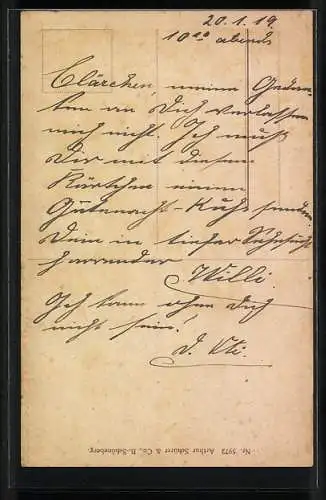 20.1.19.
10²⁰ abends
Clärchen, meine Gedan-
ken an Dich verlassen
mich nicht. Ich muß
Dir mit diesem
Kärtchen einen
Gutenacht-Kuß senden.
Dein in tiefer Sehnsucht
harrender
Willi.
Ich kann ohne Dich
nicht sein!
D. Wi.
Nr. 5972 Arthur Schürer & Co., B.-Schöneberg.